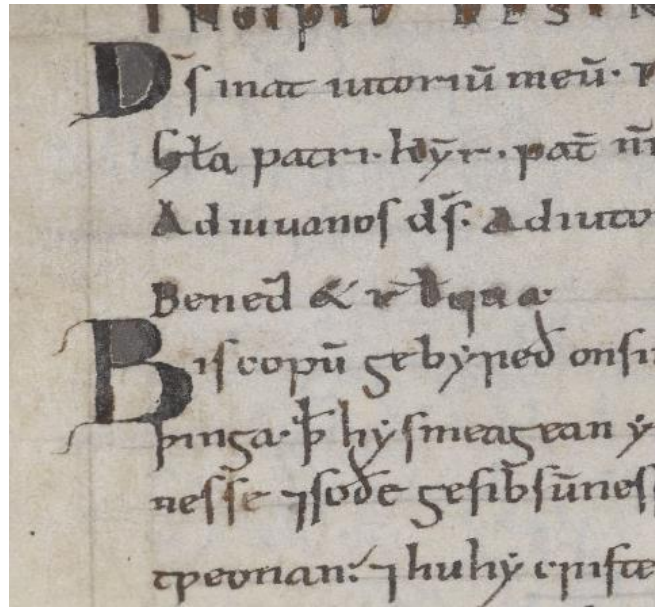 D̄s inat iutoriū meū·
Gła patri· kȳr· pat̄ n̄
Adiuuanos d̄s· adiuto
Bened̄ &
Biscopū gebẏreð onsin
þinga· ꝥ hẏ smeagean ẏ
nes̄se ⁊soðe gesib̄sūness
tƿeonan· ⁊huhẏ criste